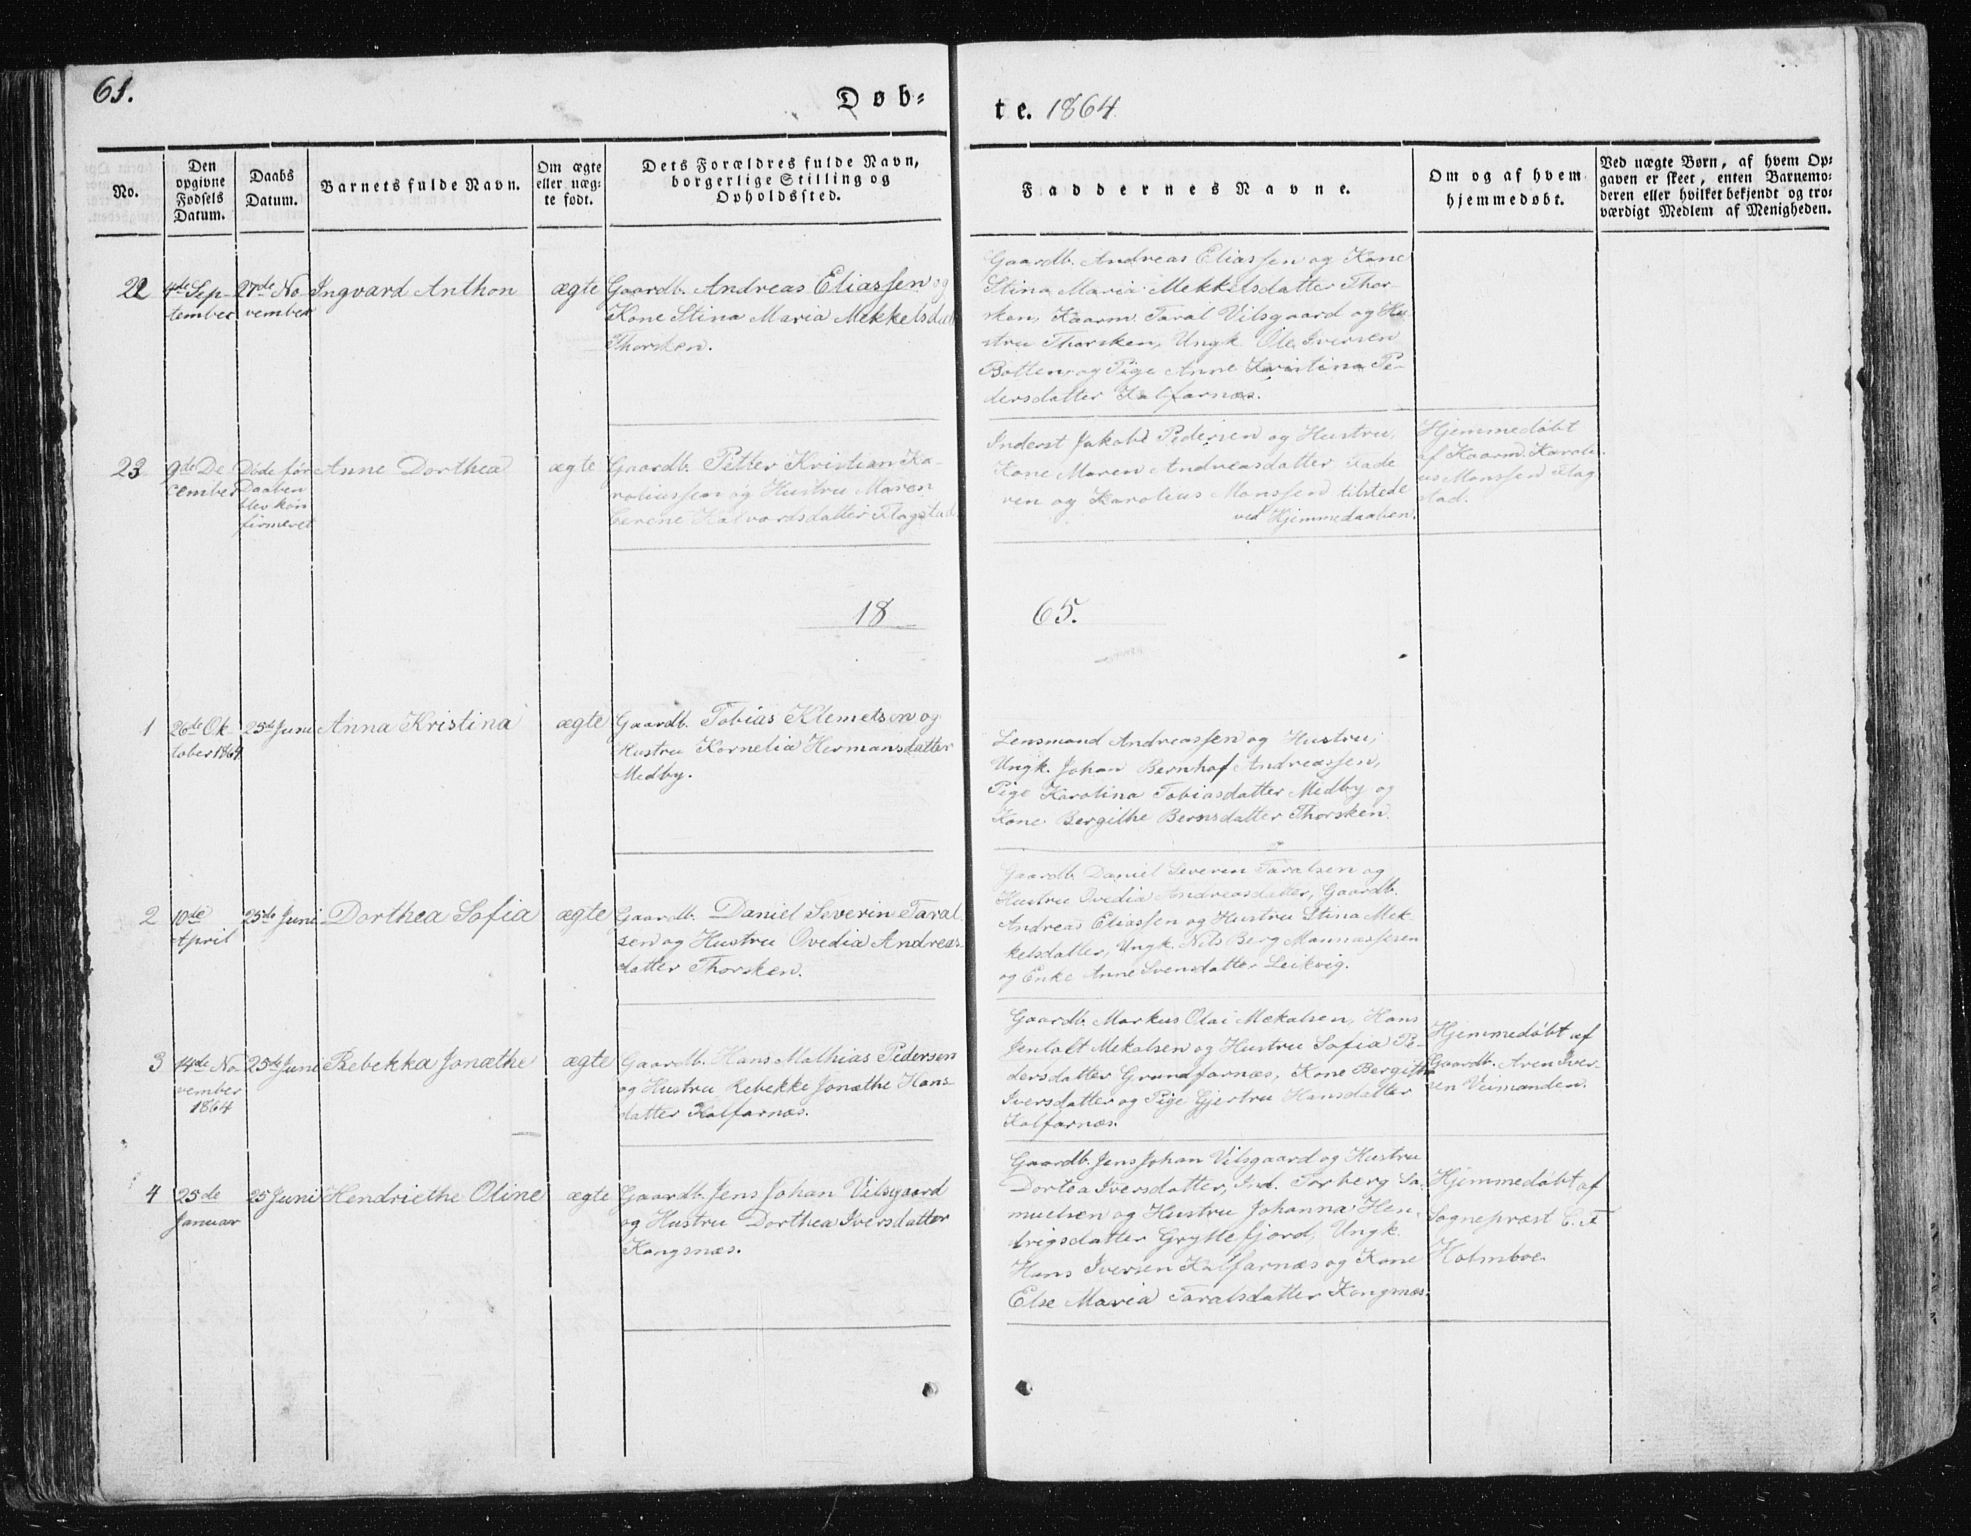 61.
Døb-
te. 1864
No.
Den
opgivne
Fødsels
Datum.
Daabs
Datum.
Barnets fulde Navn.
Om ægte
eller uæg-
te født.
Dets Forældres fulde Navn,
borgerlige Stilling og
Opholdssted.
Faddernes Navne.
Om og af hvem
hjemmedøbt.
Ved uægte Børn, af hvem Op-
gaven er skeet, enten Barnemo-
deren eller hvilket bekjendt og tro-
værdigt Medlem af Menigheden.
22
4de Sep-
tember
27de No
vember
Ingvard Anthon
ægte
Gaardb. Andreas Eliassen og
Kone Stina Maria Mekkelsdatt
Thorsken.
Gaardb. Andreas Eliassen og Kone
Stina Maria Mekkelsdatter Thor-
sken, Kaarm. Taral Vilsgaard og Hu
stru Thorsken, Ungk. Ole Iversen
Botten og Pige Anne Kristina Pe-
dersdatter Kalfarnæs.
23
9de De
cember
Døde før
Daaben
blev kon
firmeret
Anne Dorthea
ægte
Gaardb. Petter Kristian Ka-
roliussen og Hustru Maren
Berene Halvordsdatter Flagstad
Inderst Jakob Pedersen og Hustru,
Kone Maren Andreasdatter Fade
ren og Karolius Monssen tilstede
ved Hjemmedaaben.
Hjemmedøbt
af Kaarm. Karoli-
us Monssen Flag
stad.
18
65.
1
26de Ok
tober 1864
25de Juni
Anna Kristina
ægte
Gaardb. Tobias Klemetsen og
Hustru Kornelia Hermansdatter
Medby.
Lensmand Andreassen og Hustru,
Ungk. Johan Bernhof Andreassen,
Pige Karolina Tobiasdatter Medby og
Kone Bergithe Bernsdatter Thorsken.
2
10de
April
25de Juni
Dorthea Sofia
ægte
Gaardb. Daniel Severin Taral
sen og Hustru Ovedia Andreas
datter Thorsken.
Gaardb. Daniel Severin Taralsen og
Hustru Ovedia Andreasdatter, Gaardb.
Andreas Eliassen og Hustru Stina Mek-
kelsdatter, Ungk. Nils Berg Mannassesen
og Enke Anne Svensdatter Leikvig.
3
14de No
vember
1864
25de Juni
Rebekka Jonæthe
ægte
Gaardb. Hans Mathias Pedersen
og Hustru Rebekke Jonæthe Hans-
datter Kalfarnæs.
Gaardb. Markus Olai Mekalsen, Hans
Jentoft Mekalsen og Hustru Sofia Pe-
dersdatter Grundfarnæs, Kone Bergithe
Iversdatter og Pige Gjertru Hansdatter
Kalfarnæs.
Hjemmedøbt af
Gaardb. Aren Iver-
sen Veimanden.
4
25de
Januar
25 Juni
Hendriethe Oline
ægte
Gaardb. Jens Johan Vilsgaard
og Hustru Dorthea Iversdatter
Kongsnæs.
Gaardb. Jens Johan Vilsgaard og Hustru
Dortea Iversdatter, Ind. Torberg Sa-
muelsen og Hustru Johanna Hen-
drigsdatter Gryllefjord, Ungk.
Hans Iversen Kalfarnæs og Kone
Else Maria Taralsdatter Kongsnæs.
Hjemmedøbt af
Sognepræst C. F
Holmboe